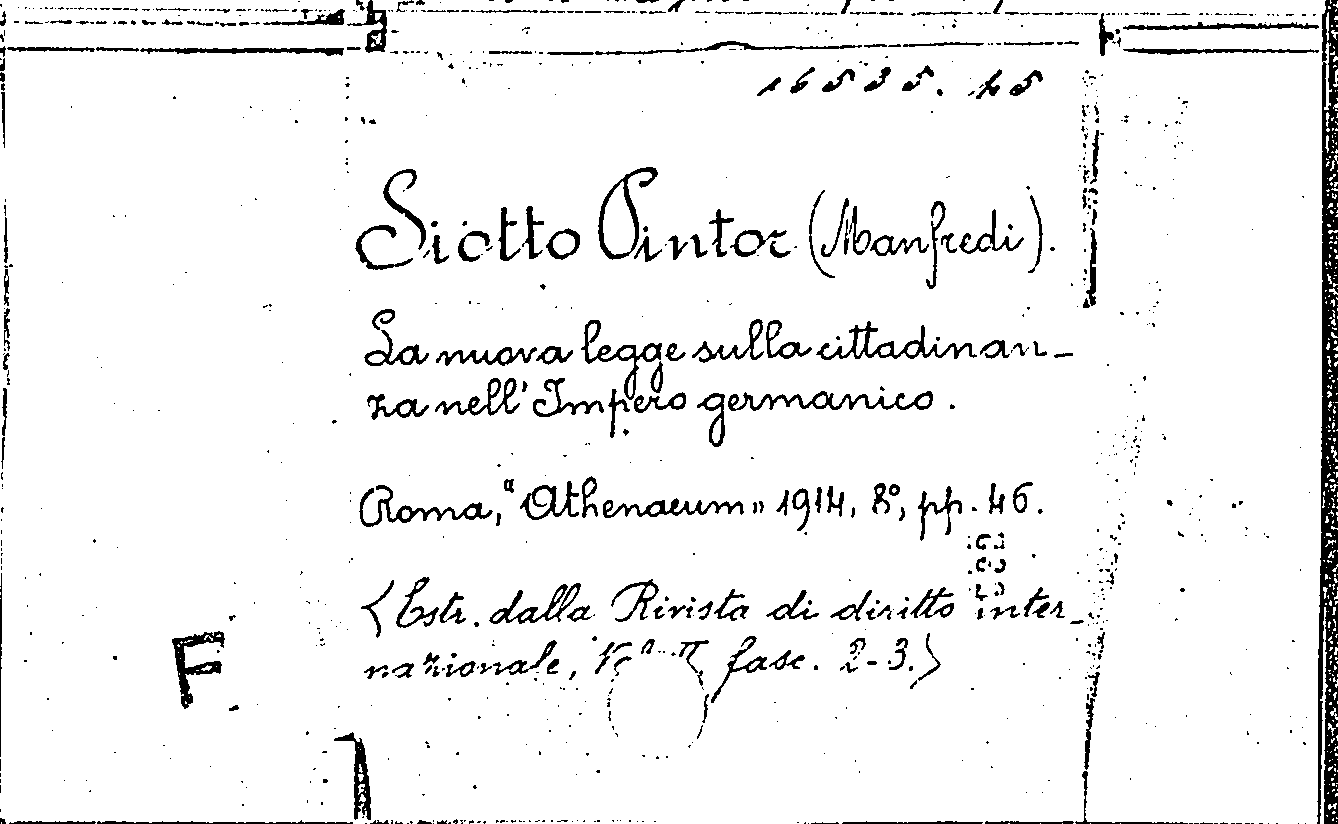 16535. 45
Siotto Pintor (Manfredi).
La nuova legge sulla cittadinan-
za nell' Impero germanico.
Roma, "Athenaeum" 1914, 8°, pp. 46.
<Estr. dalla Rivista di diritto inter-
nazionale, fasc. 2-3.>
F